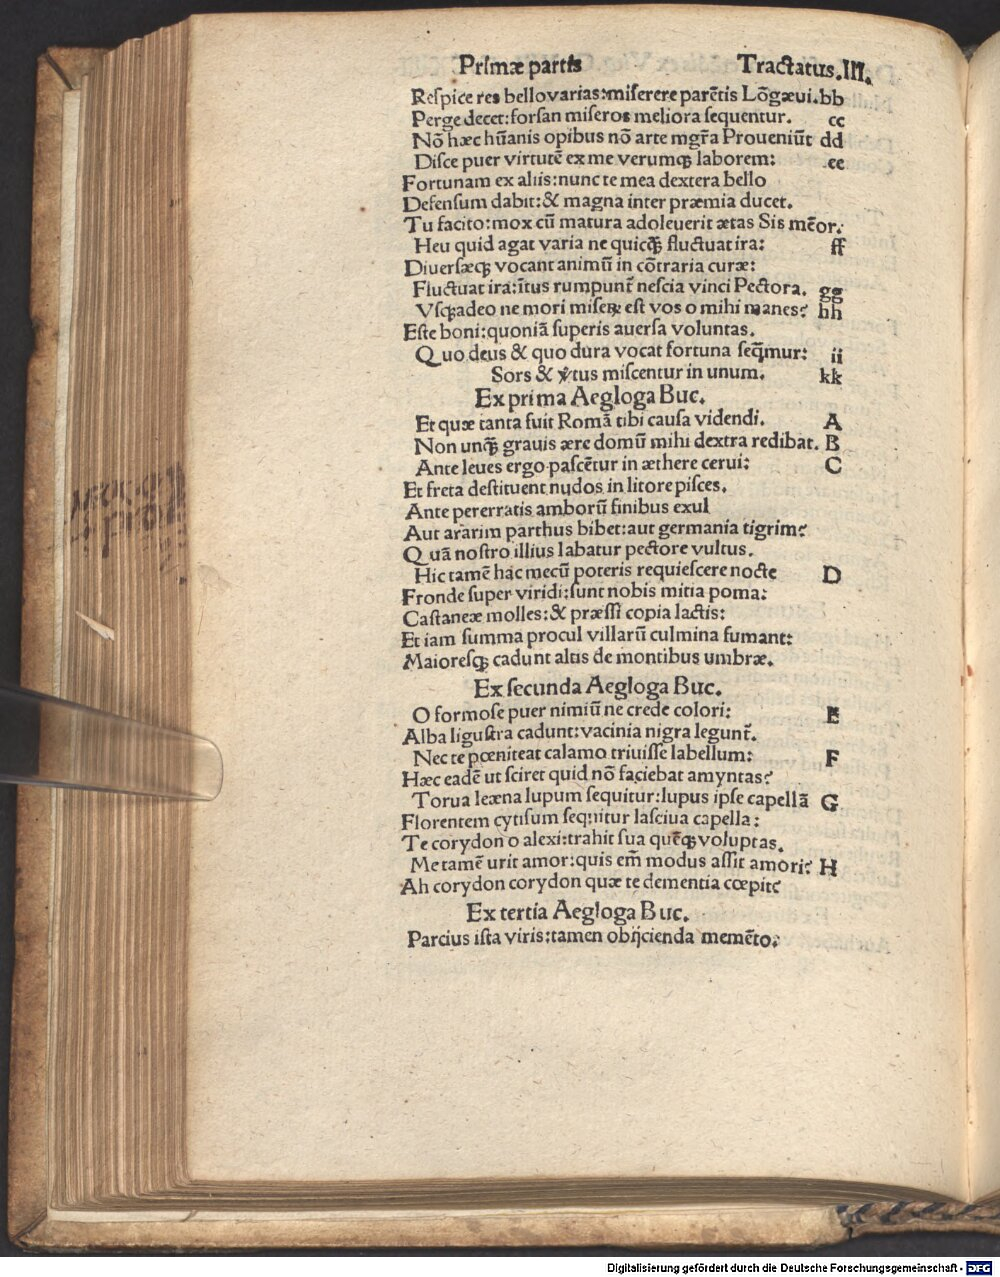 Primæ partis Tractatus.III.
Respice res bello varias:miserere parētis Lōgæui. bb
Perge decet:forsan miseros meliora sequentur. cc
Nō hæc hūanis opibus nō arte mgr̃a Proueniūt dd
Disce puer virtutē ex me verumqꝫ laborem: ee
Fortunam ex aliis:nunc te mea dextera bello
Defensum dabit:& magna inter præmia ducet.
Tu facito:mox cū matura adoleuerit ætas Sis mēor.
Heu quid agat varia ne quicqꝫ fluctuat ira: ff
Diuersæqꝫ vocant animū in cōtraria curæ:
Fluctuat ira:ītus rumpunt̃ nescia vinci Pectora. gg
Vsqꝫadeo ne mori miseꝝ est vos o mihi manes? hh
Este boni:quoniā superis auersa voluntas.
Quo deus & quo dura vocat fortuna seq̄mur: ii
Sors & v̓tus miscentur in unum. kk
Ex prima Aegloga Buc.
Et quæ tanta fuit Romā tibi causa videndi. A
Non unqꝫ grauis ære domū mihi dextra redibat. B
Ante leues ergo pascētur in æthere cerui: C
Et freta destituent nudos in litore pisces.
Ante pererratis amborū finibus exul
Aut ararim parthus bibet:aut germania tigrim?
Quā nostro illius labatur pectore vultus.
Hic tamē hac mecū poteris requiescere nocte D
Fronde super viridi:sunt nobis mitia poma:
Castaneæ molles:& præssi copia lactis:
Et iam summa procul villarū culmina fumant:
Maioresqꝫ cadunt altis de montibus umbræ.
Ex secunda Aegloga Buc.
O formose puer nimiū ne crede colori: E
Alba ligustra cadunt:vacinia nigra legunt̃.
Nec te pœniteat calamo triuisse labellum: F
Hæc eadē ut sciret quid nō faciebat amyntas?
Torua leæna lupum sequitur:lupus ipse capellā G
Florentem cytisum sequitur lasciua capella:
Te corydon o alexi:trahit sua quēqꝫ voluptas.
Me tamē urit amor:quis em̄ modus assit amori? H
Ah corydon corydon quæ te dementia cœpit?
Ex tertia Aegloga Buc.
Parcius ista viris:tamen obijcienda memēto:
Digitalisierung gefördert durch die Deutsche Forschungsgemeinschaft - DFG